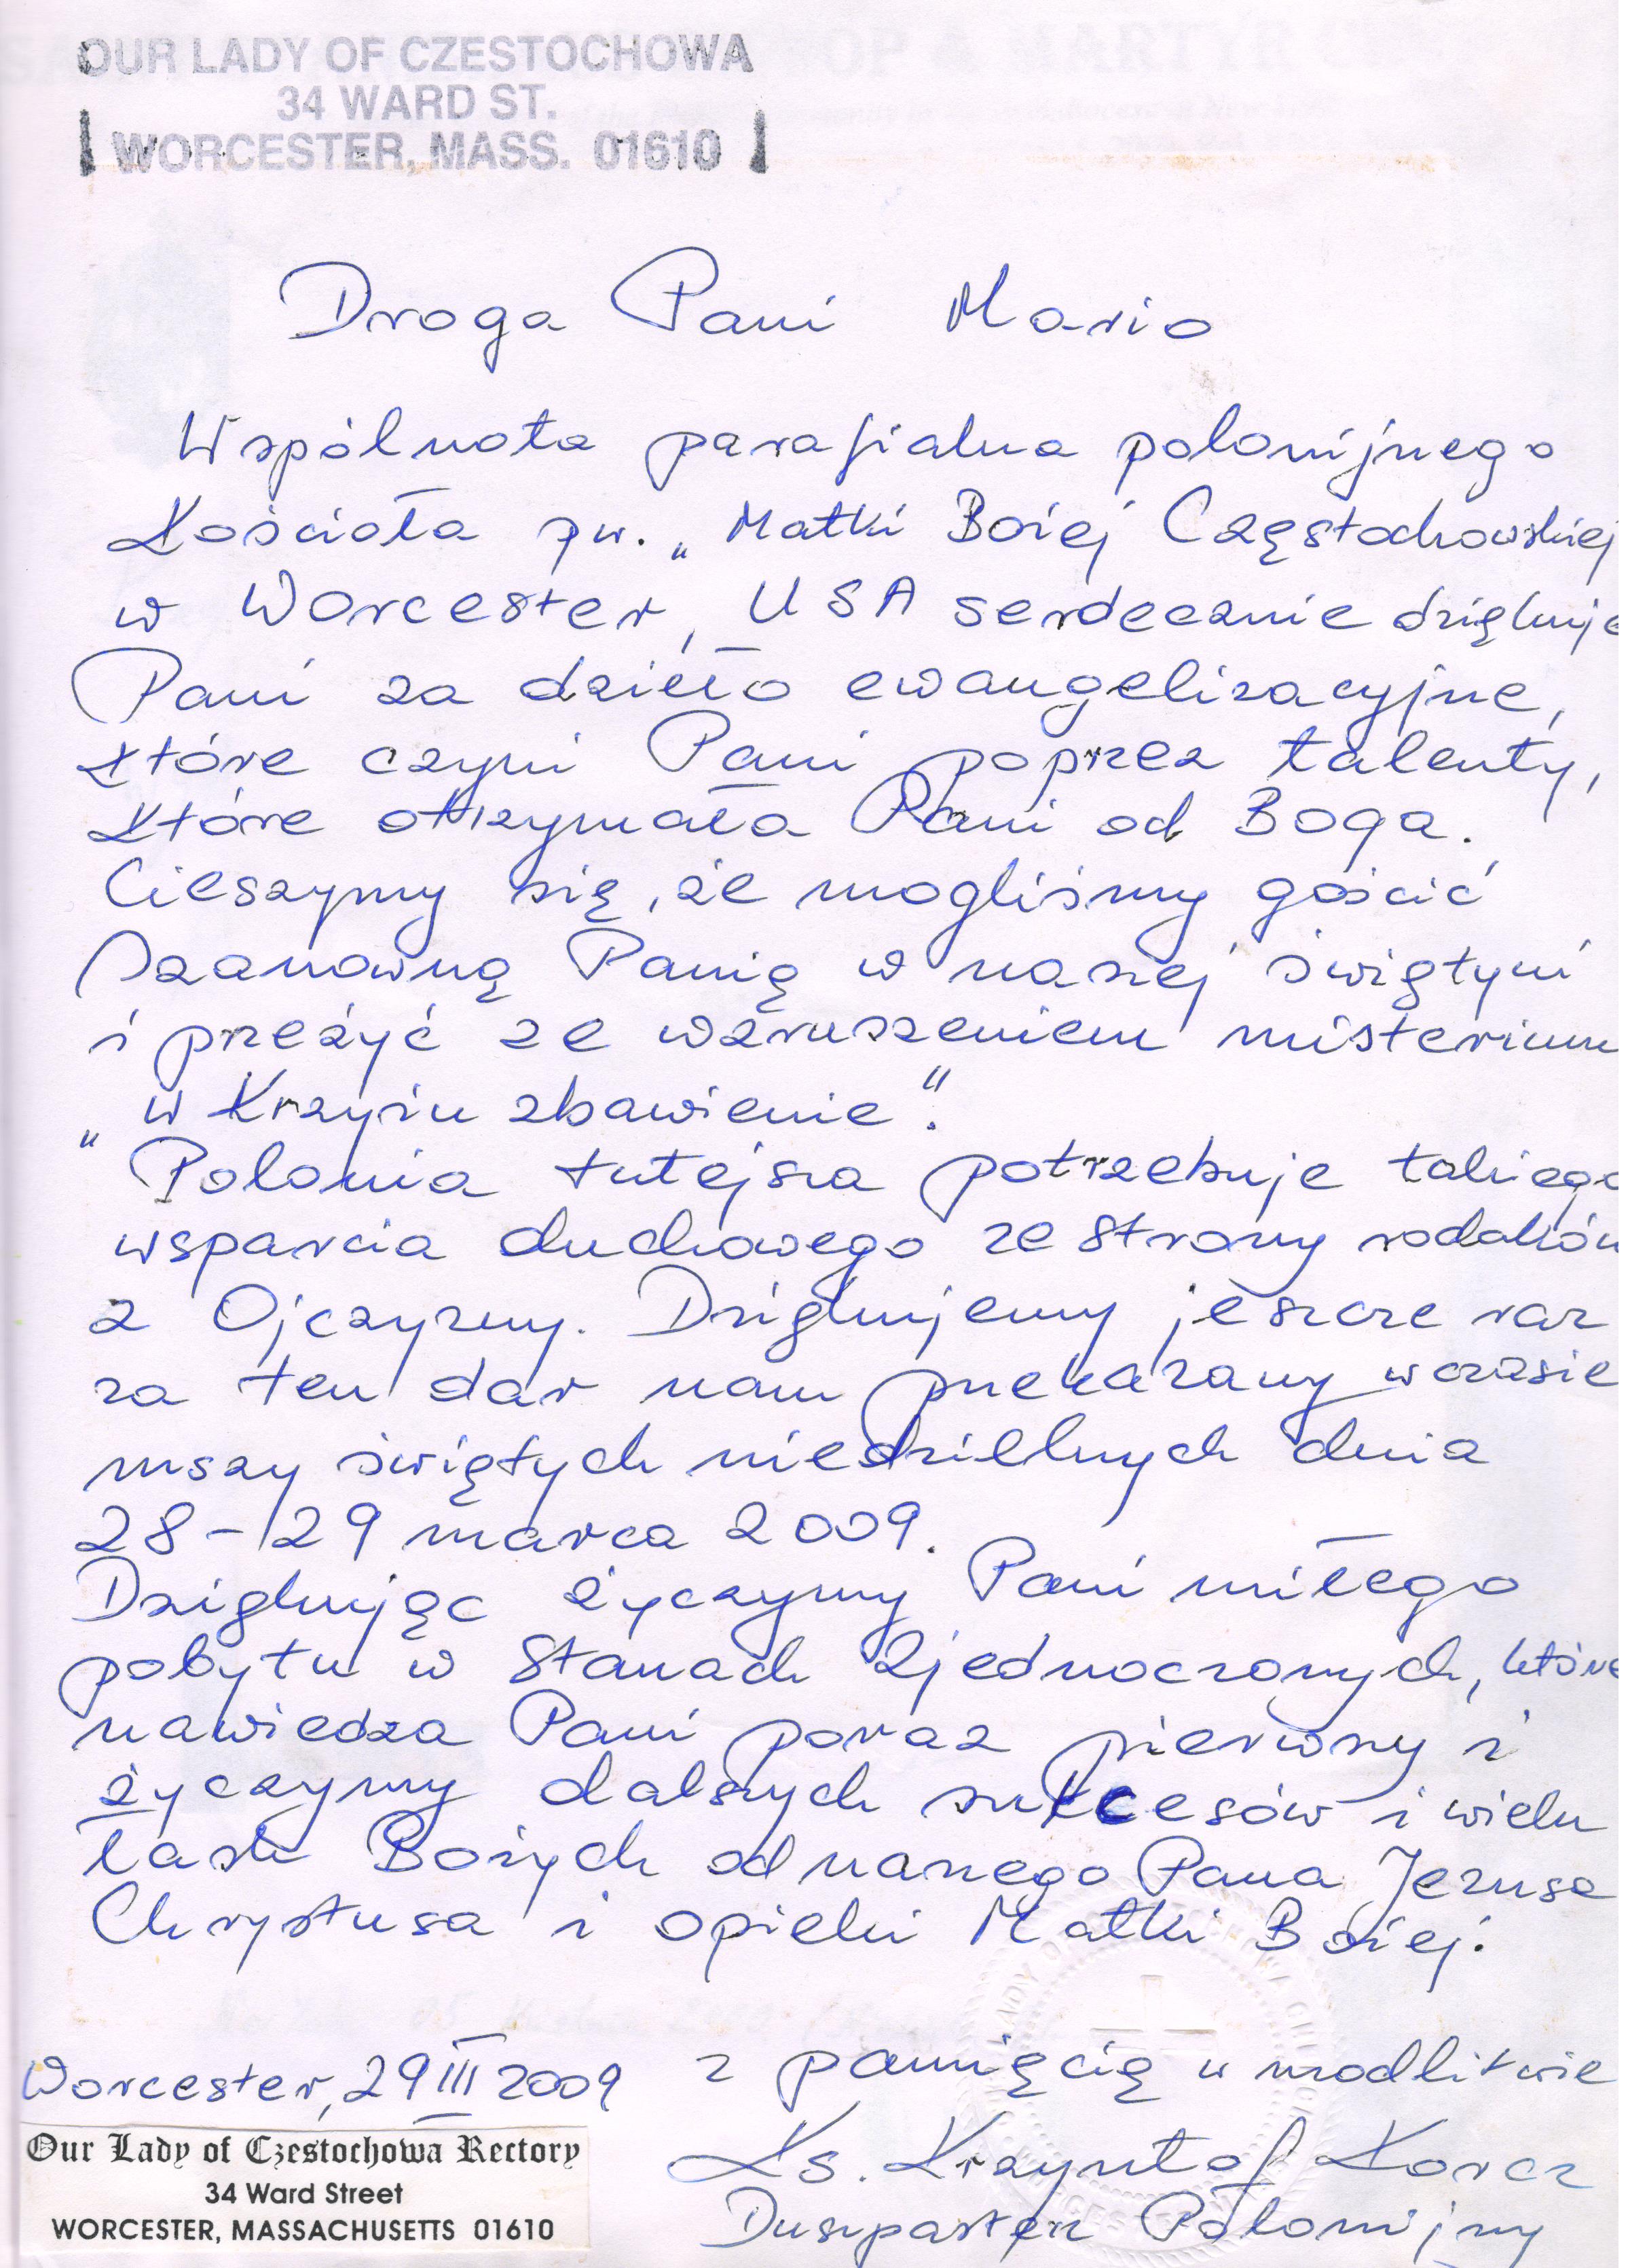 OUR LADY OF CZESTOCHOWA
34 WARD ST.
WORCESTER, MASS. 01610
Droga Pani Mario
Wspólnota parafialna polonijnego
Kościoła pw. „Matki Bożej Częstochowskiej
w Worcester, USA serdecznie dziękuje
Pani za dzieło ewangelizacyjne,
które czyni Pani poprzez talenty,
które otrzymała Pani od Boga.
Cieszymy się, że mogliśmy gościć
Szanowną Panią w naszej świątyni
i przeżyć ze wzruszeniem misterium
„w Krzyżu zbawienie".
Polonia tutejsza potrzebuje takiego
wsparcia duchowego ze strony rodaków
z Ojczyzny. Dziękujemy jeszcze raz
za ten dar nam przekazany w czasie
mszy świętych niedzielnych dnia
28-29 marca 2009.
Dziękując życzymy Pani miłego
pobytu w Stanach Zjednoczonych, które
nawiedza Pani poraz pierwszy i
życzymy dalszych sukcesów i wielu
łask Bożych od naszego Pana Jezusa
Chrystusa i opieki Matki Bożej.
Worcester, 29 III 2009
z pamięcią w modlitwie
Ks. Krzysztof Korcz
Duszpasterz Polonijny
Our Lady of Czestochowa Rectory
34 Ward Street
WORCESTER, MASSACHUSETTS 01610